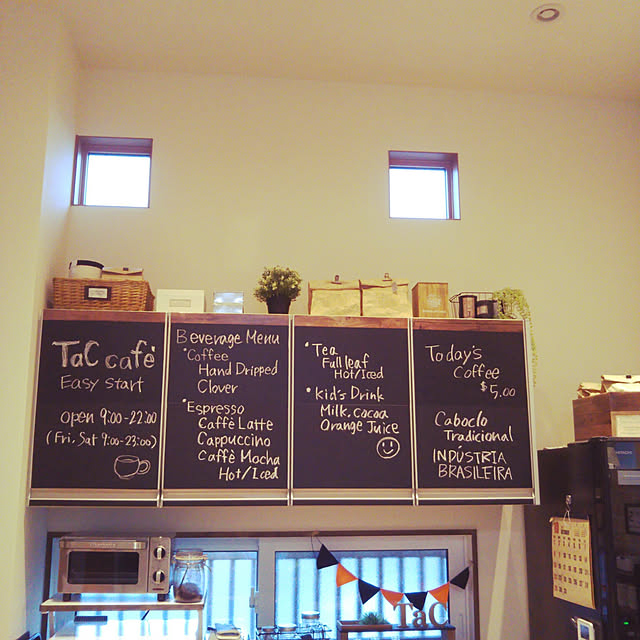 TaC cafè
Easy start
open 9:00-22:00
(Fri, Sat 9:00-23:00)
Beverage Menu
•Coffee
Hand Dripped
Clover
•Espresso
Caffè Latte
Cappuccino
Caffè Mocha
Hot/Iced
•Tea
Full leaf
Hot/Iced
•Kid's Drink
Milk, Cocoa
Orange Juice
Today's
Coffee
$5,00
Caboclo
Tradicional
INDÚSTRIA
BRASILEIRA
TaC
HITACHI